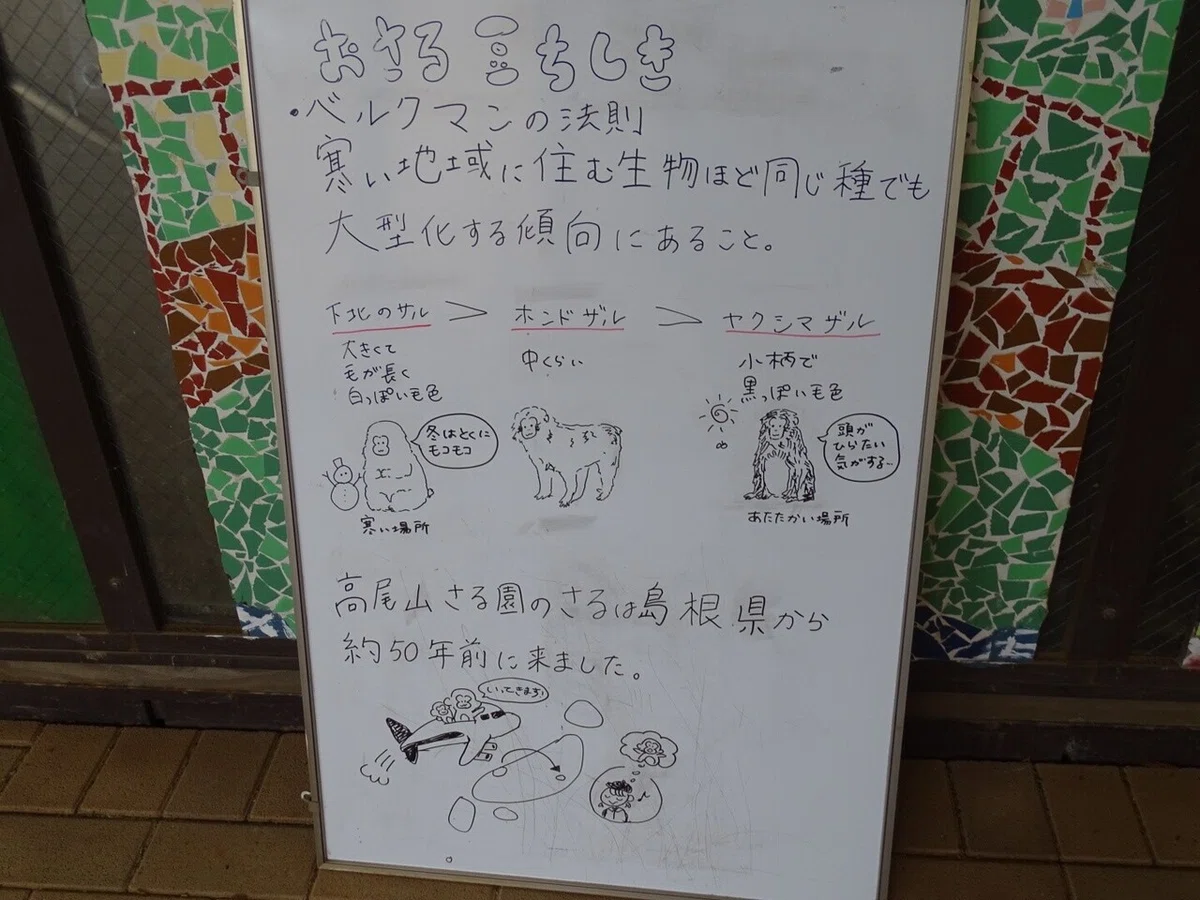 おさる豆ちしき
・ベルクマンの法則
寒い地域に住む生物ほど同じ種でも
大型化する傾向にあること。
下北のサル > ホンドザル > ヤクシマザル
大きくて
毛が長く
白っぽい毛色
中くらい
小柄で
黒っぽい毛色
冬はとくに
モコモコ
頭が
ひらたい
気がする…
寒い場所
あたたかい場所
高尾山さる園のさるは島根県から
約50年前に来ました。
いってきます!